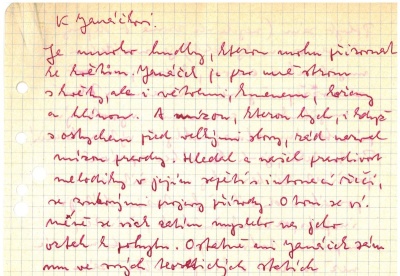 K Janáčkovi.
Je mnoho hudby, kterou mohu přirovnat
ke květům. Janáček je pro mně strom
s květy, ale i větvemi, kmenem, kořeny
a hlínou. A mízou, kterou bych, i když
s ostychem před velkými slovy, rád nazval
mízou pravdy. Hledal a našel pravdivost
melodiky v jejím sepětí s intonací řeči,
se zvukovými projevy přírody. O tom se ví.
méně se však zatím myslelo na jeho
vztah k pohybu. Ostatně ani Janáček sám
mu ve svých teoretických statích